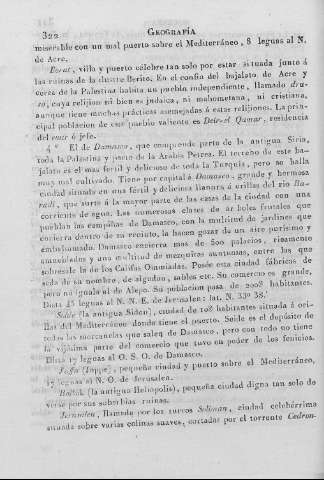 322 GEOGRAFÍA
miserable con un mal puerto sobre el Mediterráneo, 8 leguas al N.
de Acre.
Berut, villa y puerto célebre tan solo por estar situada junto á
las ruinas de la ilustre Berito. En el confin del bajalato de Acre y
cerca de la Palestina habita un pueblo independiente, llamado dru-
so, cuya religion ni bien es judaica, ni mahometana, ni cristiana,
aunque tiene muchas prácticas asemejadas á estas religiones. La prin-
cipal poblacion de este pueblo valiente es Deir-el Qamar, residencia
del emir ó jefe.
4.° El de Damasco, que comprende parte de la antigua Siria,
toda la Palestina y parte de la Arabia Petrea. El terreno de este ba-
jalato es el mas fertil y delicioso de toda la Turquía, pero se halla
muy mal cultivado. Tiene por capital á Damasco, grande y hermosa
ciudad situada en una fértil y deliciosa llanura á orillas del rio Ba-
radi, que surte á la mayor parte de las casas de la ciudad con una
corriente de agua. Las numerosas clases de árboles frutales que
pueblan las campiñas de Damasco, con la multitud de jardines que
encierra dentro de su recinto, la hacen gozar de un aire purísimo y
embalsamado. Damasco encierra mas de 500 palacios, ricamente
amueblados y una multitud de mezquitas suntuosas, entre las que
sobresale la de los Califas Omniadas. Posée esta ciudad fábricas de
seda de su nombre, de algodon, sables etc. Su comercio es grande,
pero no iguala al de Alepo. Su poblacion pasa de 200$ habitantes.
Dista 45 leguas al N. N. E. de Jerusalen: lat. N. 33° 38'.
Seide (la antigua Sidon), ciudad de 10$ habitantes situada á ori-
llas del Mediterráneo donde tiene el puerto. Seide es el depósito de
todas las mercancías que salen de Damasco, pero con todo no tiene
la vijésima parte del comercio que tuvo en poder de los fenicios.
Dista 17 leguas al O. S. O. de Damasco.
Jaffa (Joppe), pequeña ciudad y puerto sobre el Mediterráneo,
17 leguas al N. O. de Jerusalen.
Balbek (la antigua Heliopolis), pequeña ciudad digna tan solo de
verse por sus soberbias ruinas.
Jerusalen, llamada por los turcos Soliman, ciudad celebérrima
situada sobre varias colinas suaves, cortadas por el torrente Cedron-